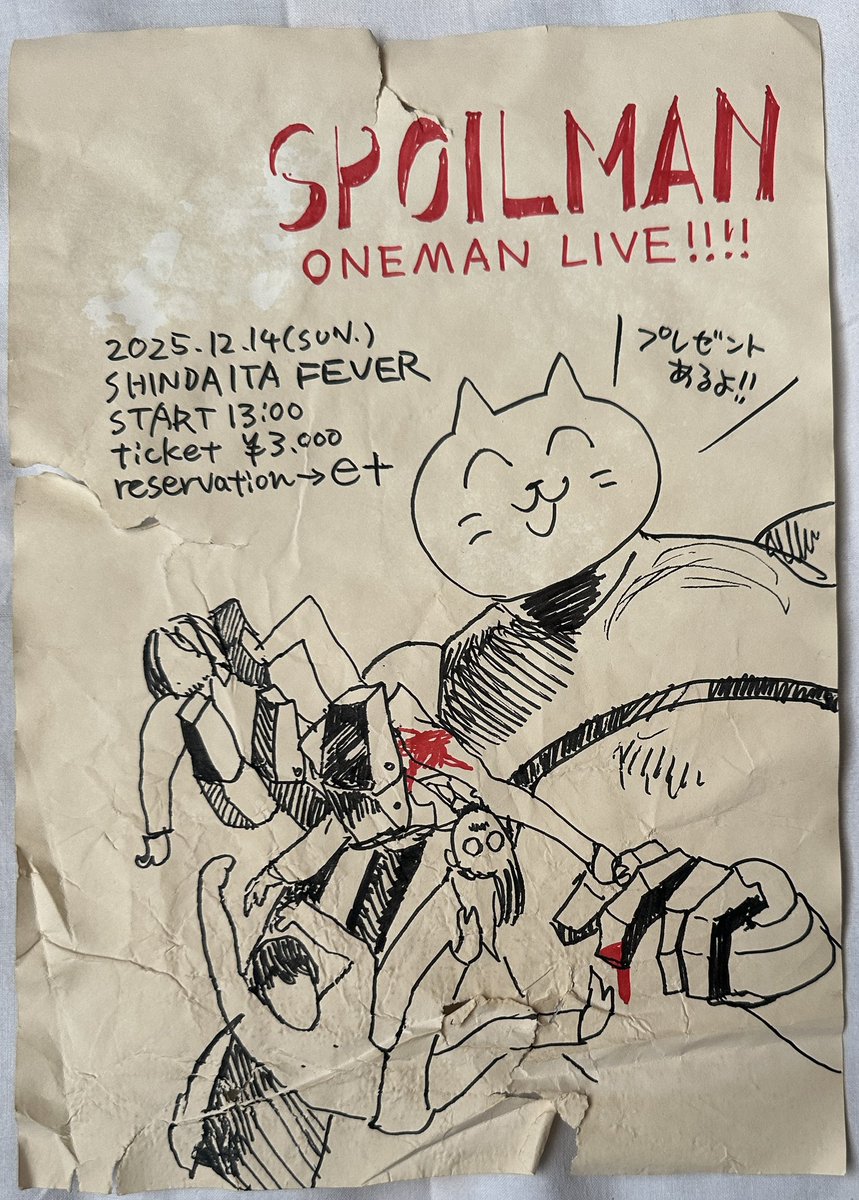 SPOILMAN
ONEMAN LIVE!!!!
2025.12.14(SUN.)
SHINDAITA FEVER
START 13:00
ticket ¥3.000
reservation→e+
プレゼント
あるよ!!